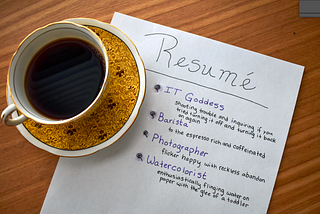 Resumé
IT Goddess
Shooting trouble and inquiring if you
tried turning it off and turning it back
on again
Barista
to the espresso rich and caffeinated
Photographer
flicker happy with reckless abandon
Watercolorist
enthusiastically flinging water on
paper with the glee of a toddler